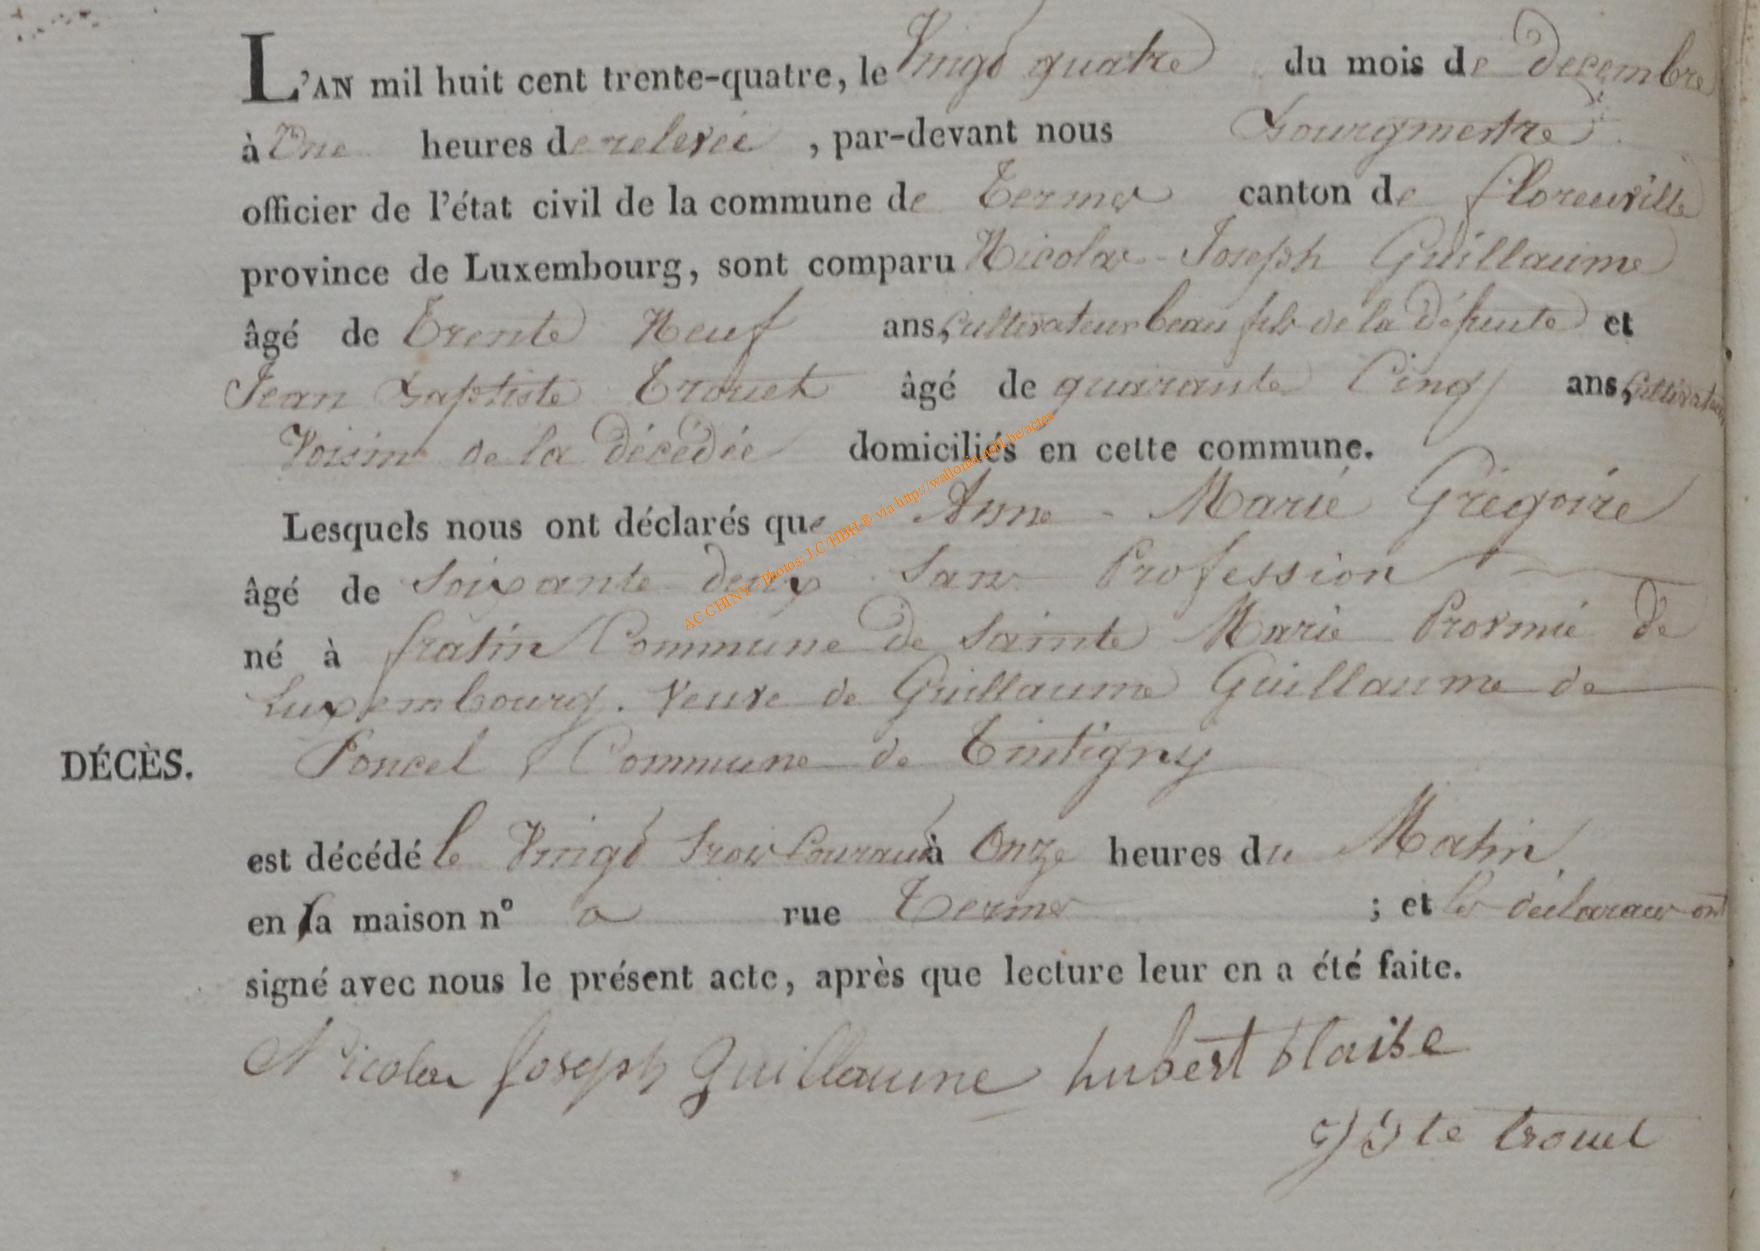 L'AN mil huit cent trente-quatre, le Vingt quatre du mois de decembre
à Une heures de relevée, par-devant nous Bourgmestre
officier de l'état civil de la commune de Termes canton de florenville
province de Luxembourg, sont comparu Nicolas-Joseph Guillaume
âgé de Trente Neuf ans, Cultivateur beau fils de la défunte et
Jean Baptiste Trouet âgé de quarante Cinq ans, Cultivateur
Voisin de la décédée domiciliés en cette commune.
Lesquels nous ont déclarés que Anne-Marie Grégoire
âgé de Soixante deux Sans Profession
né à fratin Commune de Sainte Marie Provinie de
Luxembourg. Veuve de Guillaume Guillaume de
Poncel Commune de Tintigny
DÉCÈS.
est décédé le Vingt Trois Courant à Onze heures du Matin
en sa maison n° a rue Termes ; et les déclarans ont
signé avec nous le présent acte, après que lecture leur en a été faite.
Nicolas Joseph Guillaume hubert blaise
JBte trouet
AC CHINY - Photos: J.C HBH © via http://wallonia.asbl.be/actes